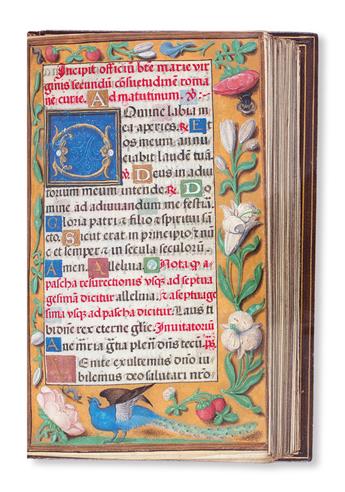 Incipit officiu bte marie vir
ginis secundu consuetudinem roma
ne curie. Ad matutinum. V.
Domine labia m
ea aperies. R. Et
os meum annu
ciabit laudem tuā
V. Deus in adiu
torium meum intende. R. Do
mine ad adiuvandum me festin
Gloria patri et filio et spiritui sā
cto. Sicut erat in principio et nūc
et semper et in secula seculorū
Amen. Alleluia. Nota q a
pascha resurectionis usq ad septua
gesimā dicitur alleluia. et a septuage
sima usq ad pascha dicitur. Laus ti
bi dne rex eterne glie. Invitatoriū
Aue mria grā plena dns tecū. ps.
Venite exultemus dno iu
bilemus deo salutari nro